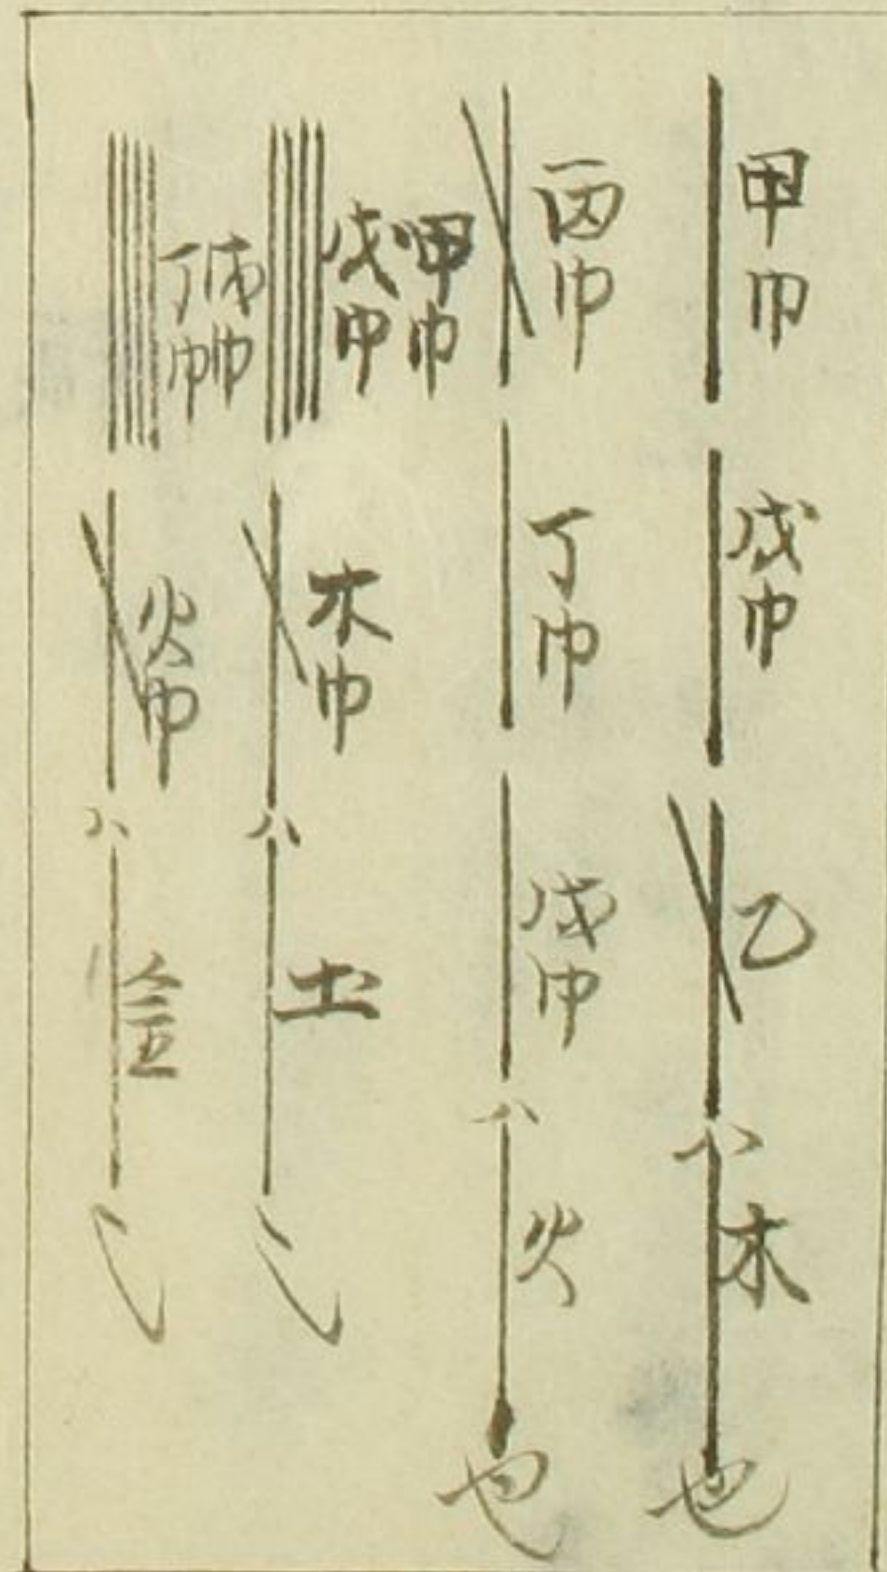 甲巾 戊巾 乙 ハ 木 也
丙巾 丁巾 戊巾 ハ 火 也
甲巾 戊巾 木巾 ハ 土 〻
戊巾 丁巾 火巾 ハ 金 〻